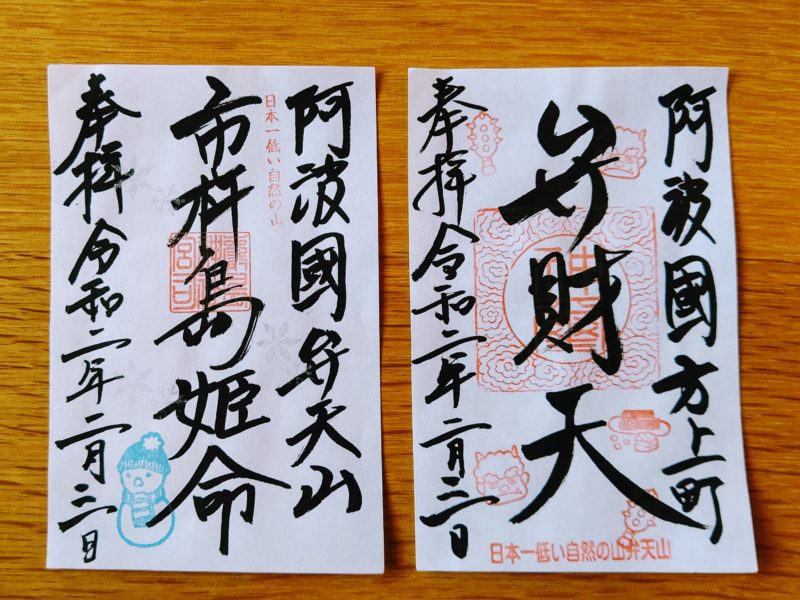 阿波國弁天山
日本一低い自然の山
市杵島姫命
奉拝令和二年二月三日
阿波國方上町
弁財天
奉拝令和二年二月三日
日本一低い自然の山弁天山